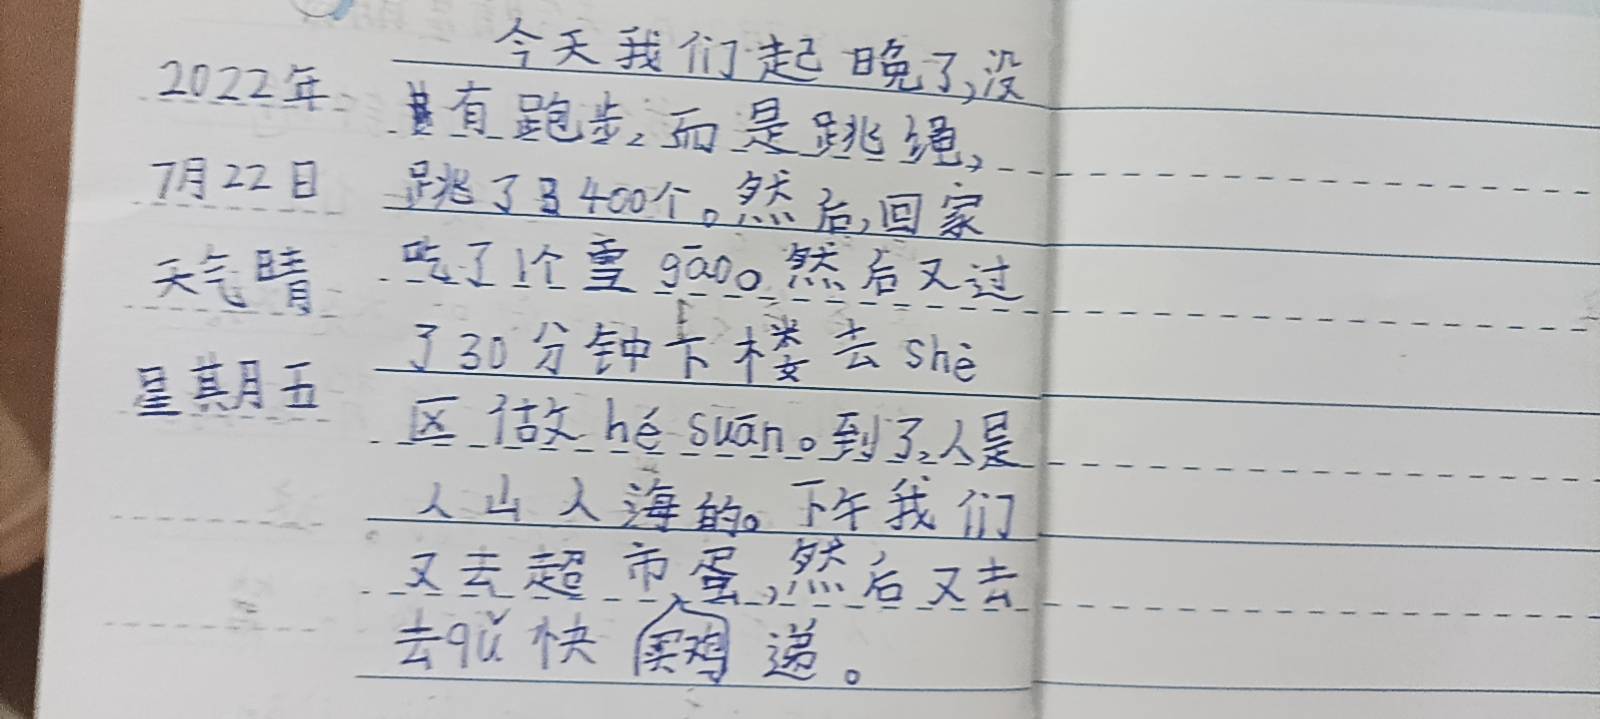 2022年
7月22日
天气晴
星其月五
今天我们起晚了,没
有跑步,而是跳绳,
跳了400个。然后,回家
吃了1个雪gāo。然后又过
了30分钟下楼去shè
区做hé suān。到了,人是
人山人海的。下午我们
又去超市蛋,然后又去
去qǔ快递。
买鸡